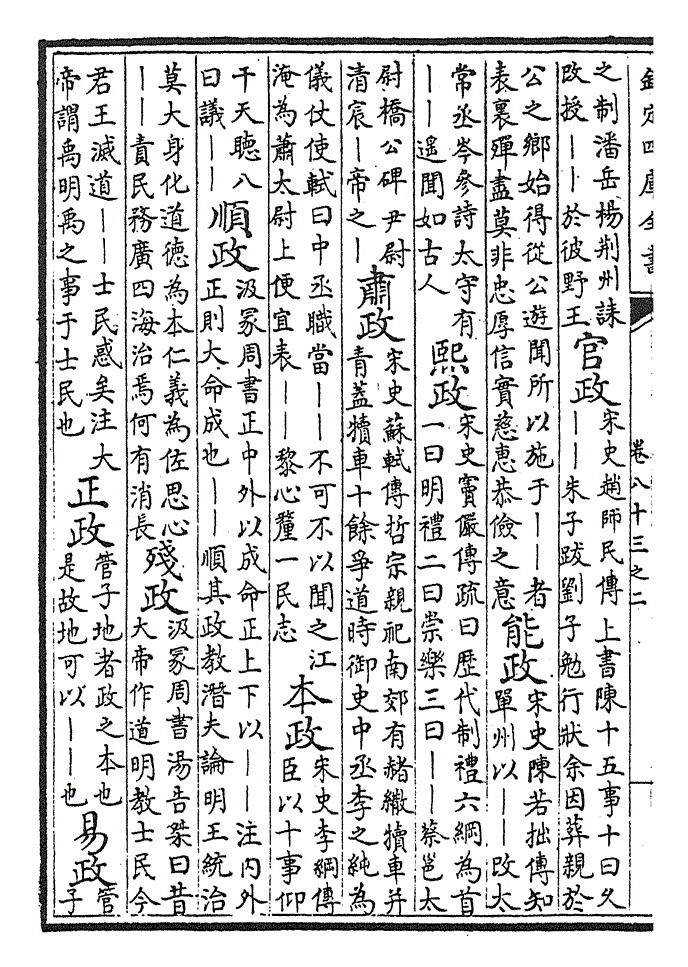 欽定四庫全書
卷八十三之二
之制潘岳楊荆州誄
改授——於彼野王
官政
宋史趙師民傳上書陳十五事十曰久
——朱子跋劉子勉行狀余因葬親於
公之鄉始得從公遊聞所以施于——者
表裏殫盡莫非忠厚信實慈惠恭儉之意
能政
宋史陳若拙傳知
單州以——改太
常丞岑參詩太守有
——遥聞如古人
熙政
宋史竇儼傳疏曰歴代制禮六綱為首
一曰明禮二曰崇樂三曰——蔡邕太
尉橋公碑尹尉
清宸—帝之—
肅政
宋史蘇軾傳哲宗親祀南郊有赭繖犢車并
青蓋犢車十餘爭道時御史中丞李之純為
儀仗使軾曰中丞職當——不可不以聞之江
淹為蕭太尉上便宜表——黎心釐一民志
本政
宋史李綱傳
臣以十事仰
干天聽八
曰議——
順政
汲冢周書正中外以成命正上下以——注内外
正則大命成也——順其政教潛夫論明王統治
莫大身化道德為本仁義為佐思心
——責民務廣四海治焉何有消長
殘政
汲冢周書湯告桀曰昔
大帝作道明教士民今
君王滅道——士民惑矣注大
帝謂禹明禹之事于士民也
正政
管子地者政之本也
是故地可以——也
易政
管
子